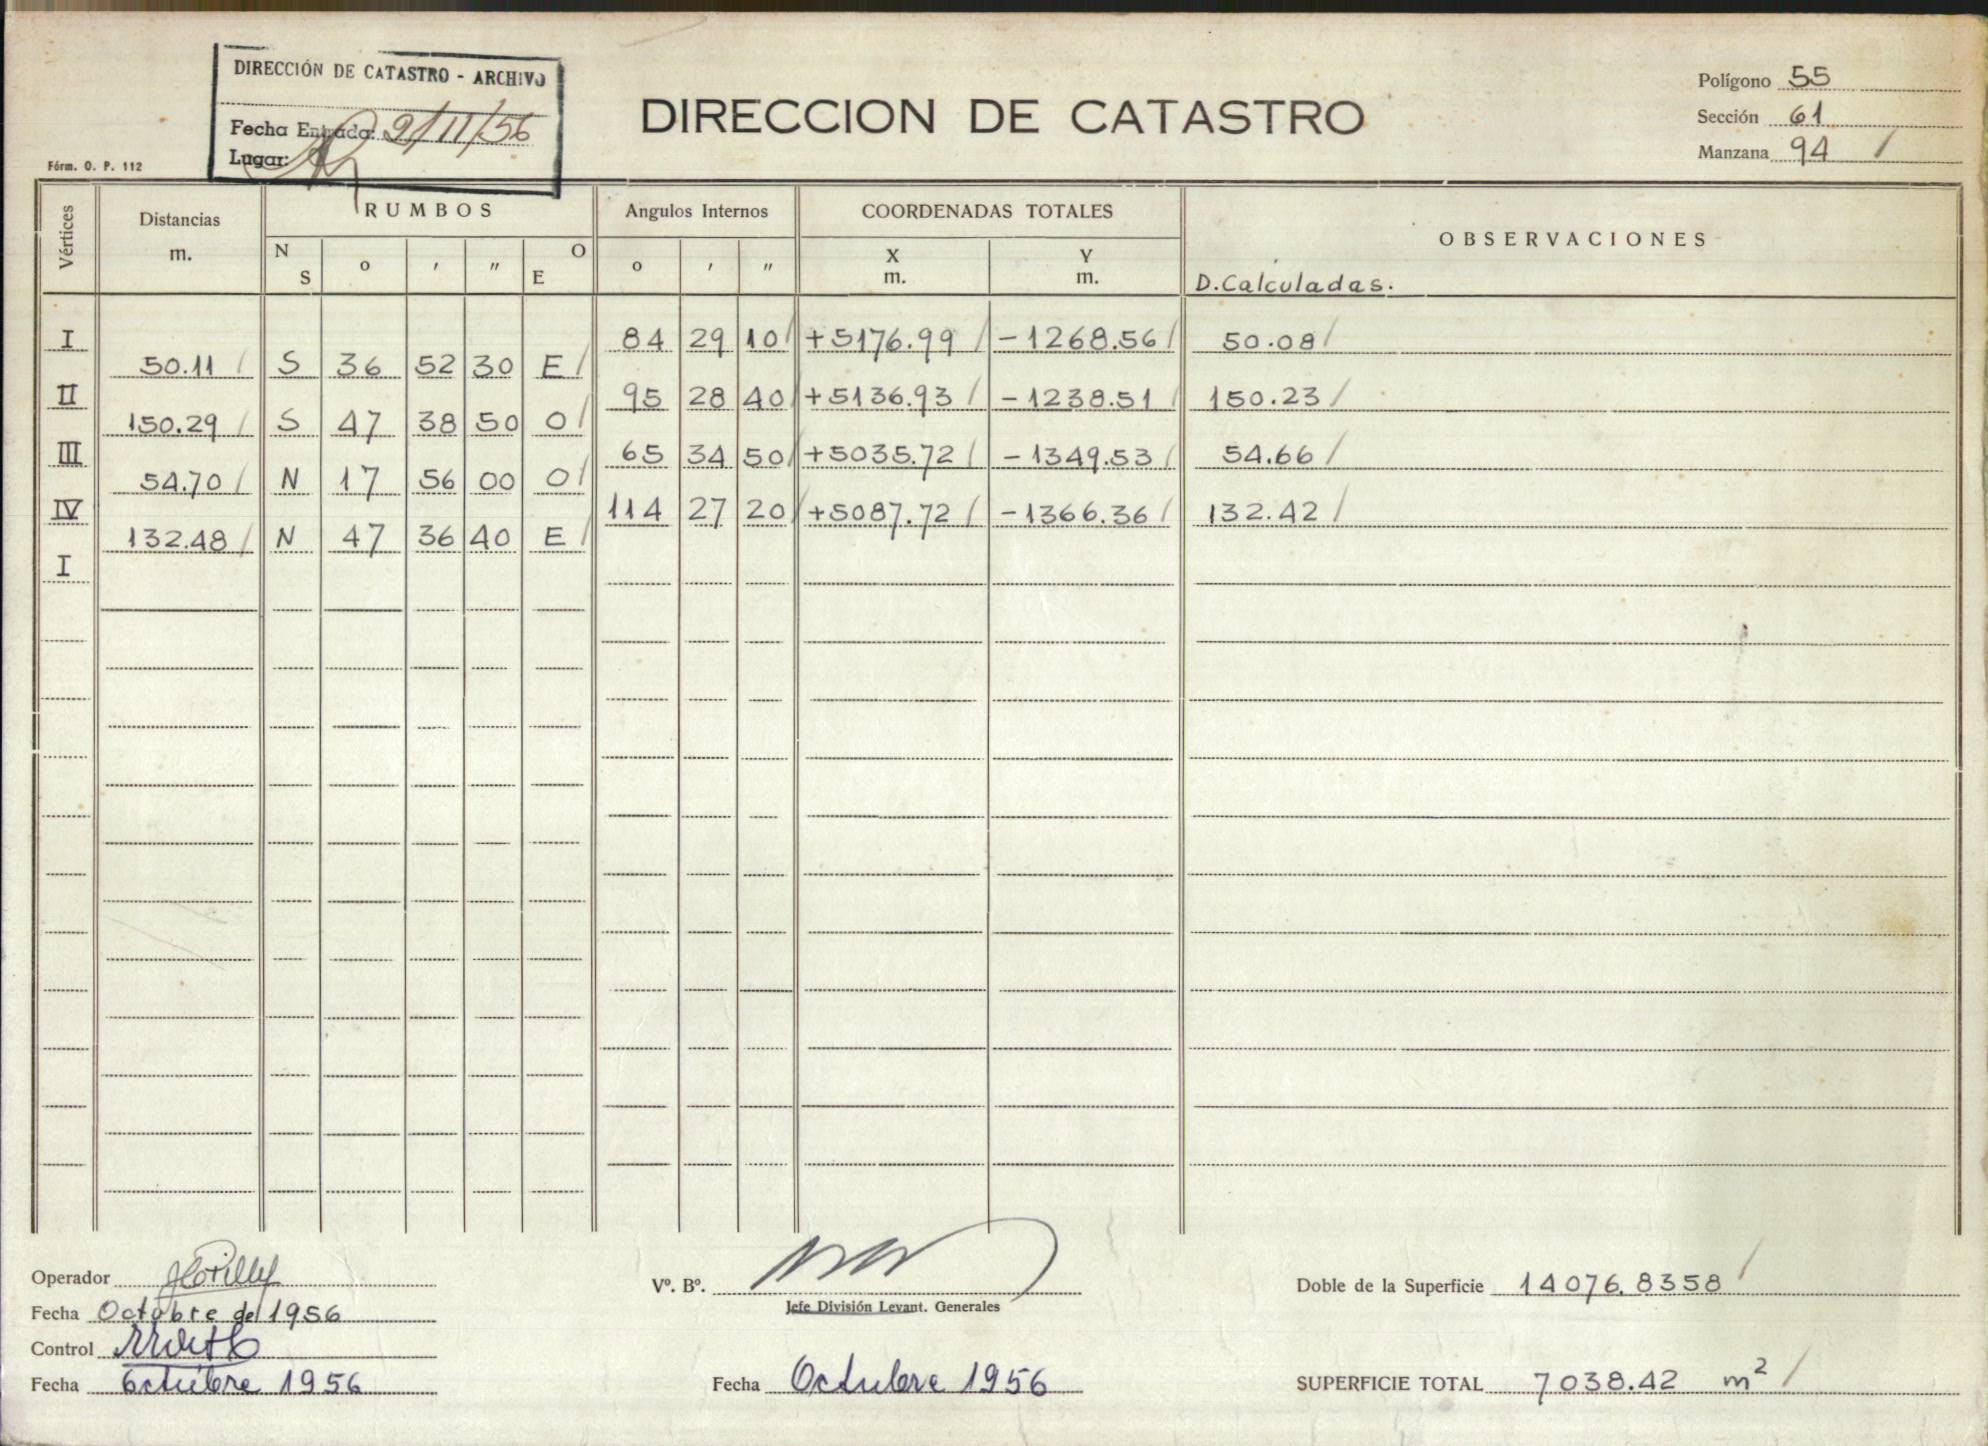 DIRECCIÓN DE CATASTRO - ARCHIVO
Fecha Entrada: 9/11/56
Lugar:
Fórm. O. P. 112
DIRECCION DE CATASTRO
Polígono 55
Sección 61
Manzana 94 /
Vértices Distancias m. RUMBOS Angulos Internos COORDENADAS TOTALES OBSERVACIONES
N S o ′ ″ O E o ′ ″ X m. Y m. D. Calculadas.
I 84 29 10/ +5176.99 / -1268.56/ 50.08/
50.11 / S 36 52 30 E/
II 95 28 40/ +5136.93 / -1238.51 / 150.23/
150.29 / S 47 38 50 O/
III 65 34 50/ +5035.72 / -1349.53 / 54.66 /
54.70 / N 17 56 00 O/
IV 114 27 20/ +5087.72 / -1366.36 / 132.42 /
132.48 / N 47 36 40 E/
I
Operador
Fecha Octobre de 1956
Control
Fecha Octubre 1956
Vº. Bº.
Jefe División Levant. Generales
Fecha Octubre 1956
Doble de la Superficie 14076.8358 /
SUPERFICIE TOTAL 7038.42 m² /